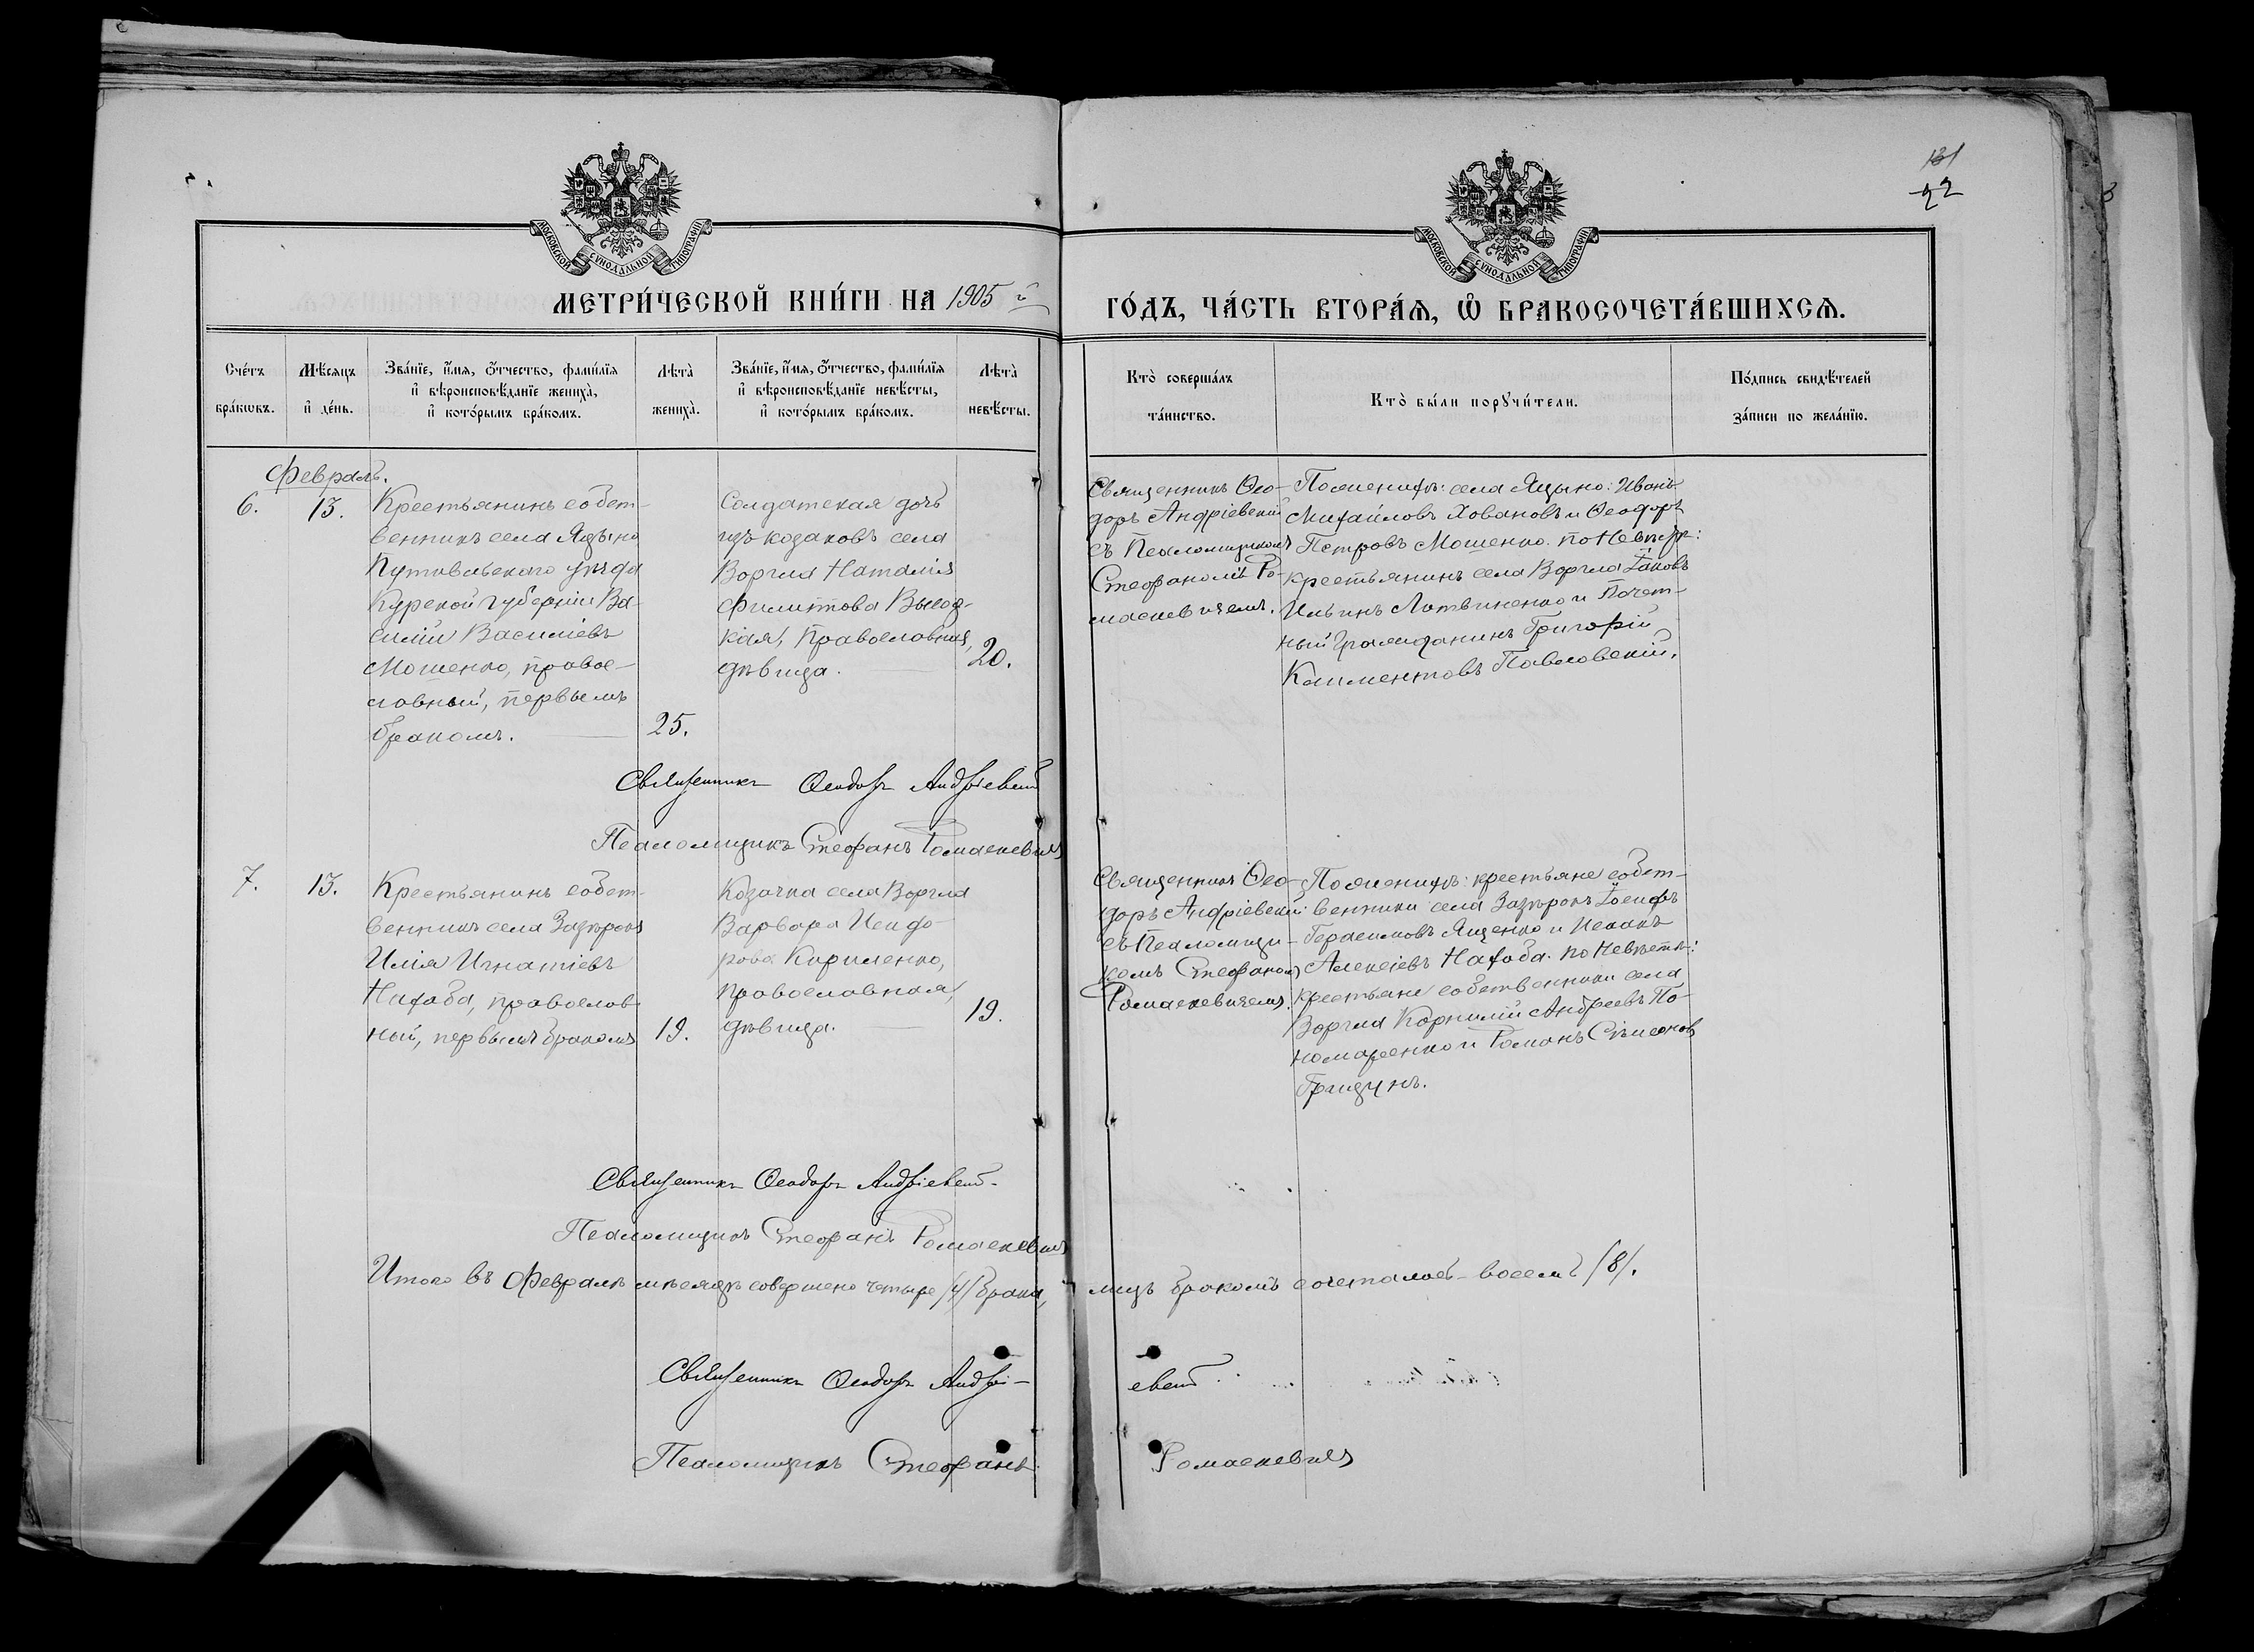 131
22
МОСКОВСКОЙ СУНОДАЛЬНОЙ ТИПОГРАФІИ
МОСКОВСКОЙ СУНОДАЛЬНОЙ ТИПОГРАФІИ
МЕТРИ́ЧЕСКОЙ КНИ́ГИ НА 1905 й
ГО́ДЪ, ЧА́СТЬ ВТОРА́Ѧ, Ѡ҆ БРАКОСОЧЕТА́ВШИХСѦ.
Сче́тъ
бра́кѡвъ.
Мѣ́сяцъ
и҆ де́нь.
Зва́нїе, и҆́мѧ, ѻ҆́тчество, фами́лїѧ
и҆ вѣроисповѣ́данїе жениха̀,
и҆ кото́рымъ бра́комъ.
Лѣта̀
жениха̀.
Зва́нїе, и҆́мѧ, ѻ҆́тчество, фами́лїѧ
и҆ вѣроисповѣ́данїе невѣ́сты,
и҆ кото́рымъ бра́комъ.
Лѣта̀
невѣ́сты.
Кто̀ соверша́лъ
та́инство.
Кто̀ бы́ли порꙋчи́тели.
По́дпись свидѣ́телей
за́писи по жела́нїю.
Февраль.
6.
13.
Крестьянинъ собст-
венникъ села Яцыно
Путивльскаго уѣзда
Курской губерніи Ва-
силій Василіевъ
Мошенко, правос-
лавный, первымъ
бракомъ.
25.
Солдатская дочь
изъ козаковъ села
Воргла Наталія
Филиппова Высоц-
кая, православная,
дѣвица.
20.
Священникъ Ѳео-
доръ Андріевскій
съ Псаломщикомъ
Стефаномъ Ро-
маскевичемъ.
По женихѣ: села Яцыно: Иванъ
Михайловъ Ховановъ и Ѳеодоръ
Петровъ Мошенко. по Невѣстѣ:
крестьянинъ села Воргла Іаковъ
Ильинъ Литвиненко и Почет-
ный гражданинъ Григорій
Климентовъ Павловскій.
Священникъ Ѳеодоръ Андріевскій
Псаломщикъ Стефанъ Ромаскевичъ
7.
13.
Крестьянинъ собст-
венникъ села Зазѣрокъ
Илія Игнатіевъ
Нахаба, православ-
ный, первымъ бракомъ
19.
Козачка села Воргла
Варвара Исидо-
рова Кириленко,
православная,
дѣвица.
19.
Священникъ Ѳео-
доръ Андріевскій
съ Псаломщи-
комъ Стефаномъ
Ромаскевичемъ.
По женихѣ: крестьяне собст-
венники села Зазѣрокъ Іосифъ
Герасимовъ Ященко и Исаакъ
Алексіевъ Нахаба. по Невѣстѣ:
крестьяне собственники села
Воргла Корнилій Андреевъ По-
номаренко и Романъ Симеоновъ
Грицунъ.
Священникъ Ѳеодоръ Андріевскій
Псаломщикъ Стефанъ Ромаскевичъ
Итого въ Февралѣ мѣсяцѣ совершено четыре /4/ брака, лицъ бракомъ сочеталось восемь /8/.
Священникъ Ѳеодоръ Андріевскій
Псаломщикъ Стефанъ Ромаскевичъ